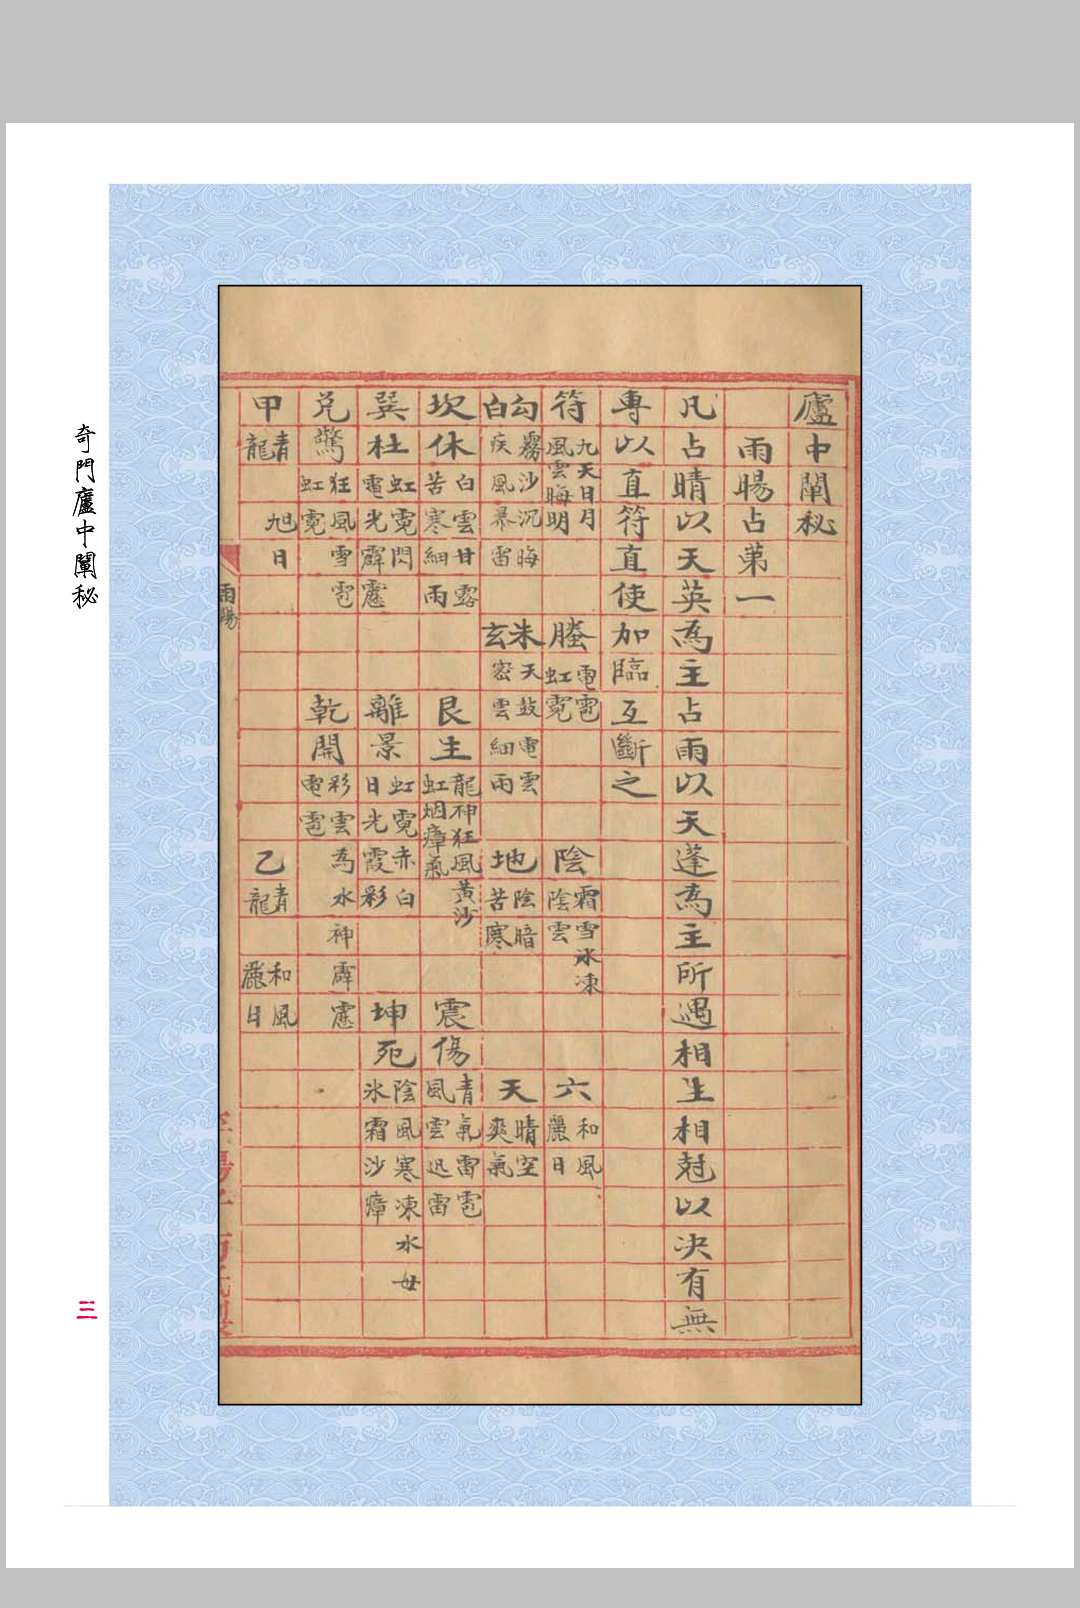 廬中闡秘
雨暘占第一
凡占晴以天英為主占雨以天蓬為主所遇相生相尅以决有無
專以直符直使加臨互斷之
符 九天日月風雲晦明 螣 電雹虹霓 陰 霜雪氷凍陰雲 六 和風麗日
勾白 霧沙沉晦疾風暴雷 朱玄 天鼓電雲密雲細雨 地 陰暗苦寒 天 晴空爽氣
坎休 白雲甘露苦寒細雨 艮生 龍神狂風黃沙虹烟瘴氣 震傷 青氣雷雹風雲迅雷
巽杜 虹霓閃電光霹靂 離景 虹霓赤白日光霞彩 坤死 陰風寒凍水母氷霜沙瘴
兑驚 狂風雪雹虹霓 乾開 彩雲為水神霹靂電雹
甲 青龍 旭日 乙 青龍 和風麗日
雨暘
奇門廬中闡秘
三